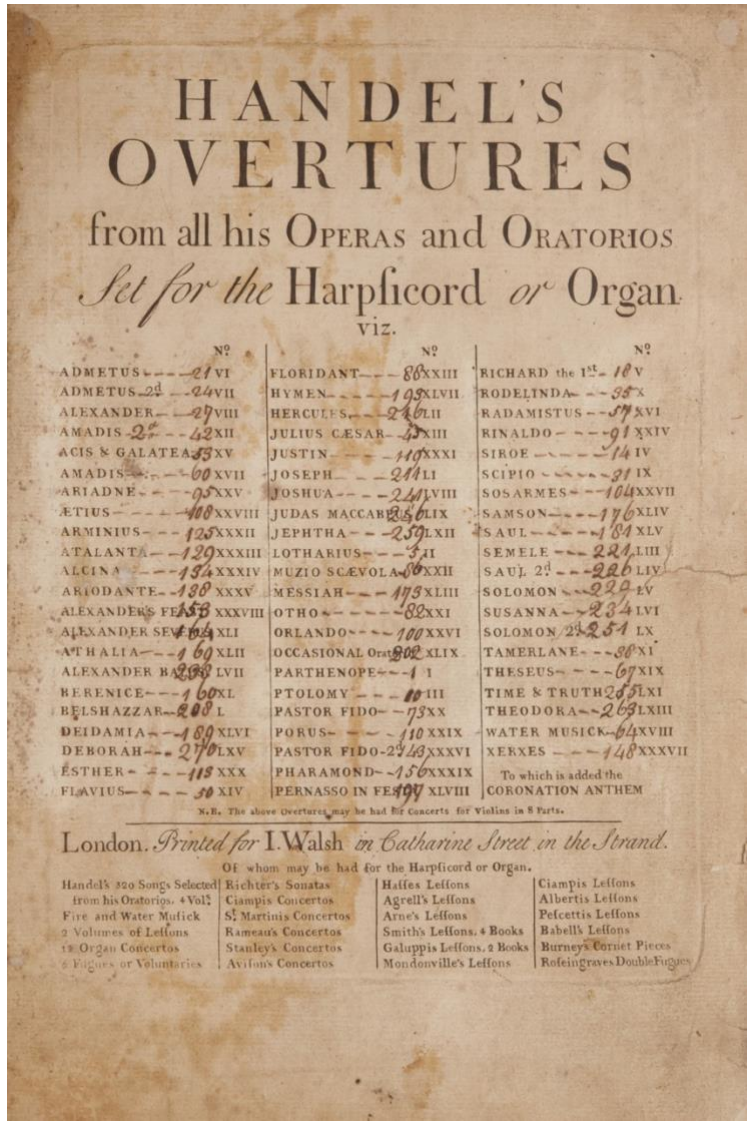 HANDEL'S
OVERTURES
from all his OPERAS and ORATORIOS
Set for the Harpſicord or Organ.
viz.
Nº
ADMETUS 21 VI
ADMETUS 2d 24 VII
ALEXANDER 27 VIII
AMADIS 2d 42 XII
ACIS & GALATEA 53 XV
AMADIS 60 XVII
ARIADNE 95 XXV
ÆTIUS 108 XXVIII
ARMINIUS 125 XXXII
ATALANTA 129 XXXIII
ALCINA 134 XXXIV
ARIODANTE 138 XXXV
ALEXANDER'S 153 XXXVIII
ALEXANDER 164 XLI
ATHALIA 169 XLII
ALEXANDER LVII
BERENICE 160 XL
BELSHAZZAR 208 L
DEIDAMIA 189 XLVI
DEBORAH 270 LXV
ESTHER XXX
FLAVIUS XIV
Nº
FLORIDANT XXIII
HYMEN XLVII
HERCULES LII
JULIUS CÆSAR XIII
JUSTIN XXXI
JOSEPH 211 LI
JOSHUA LVIII
JUDAS LIX
JEPHTHA 259 LXII
LOTHARIUS II
MUZIO SCÆVOLA 86 XXII
MESSIAH 173 XLIII
OTHO 82 XXI
ORLANDO 100 XXVI
OCCASIONAL Orat 202 XLIX
PARTHENOPE 1 I
PTOLOMY 10 III
PASTOR FIDO 73 XX
PORUS 110 XXIX
PASTOR FIDO 2d 143 XXXVI
PHARAMOND 156 XXXIX
PERNASSO IN 197 XLVIII
Nº
RICHARD the 1st 18 V
RODELINDA 35 X
RADAMISTUS 57 XVI
RINALDO 91 XXIV
SIROE 14 IV
SCIPIO 31 IX
SOSARMES 104 XXVII
SAMSON 176 XLIV
SAUL 181 XLV
SEMELE 221 LIII
SAUL 2d 226 LIV
SOLOMON 229 LV
SUSANNA 234 LVI
SOLOMON 2d 251 LX
TAMERLANE 38 XI
THESEUS 67 XIX
TIME & TRUTH 255 LXI
THEODORA 263 LXIII
WATER MUSICK 64 XVIII
XERXES 148 XXXVII
To which is added the
CORONATION ANTHEM
N.B. The above Overtures may be had for Concerts for Violins in 8 Parts.
London. Printed for I. Walsh in Catharine Street in the Strand.
Of whom may be had for the Harpſicord or Organ.
Handel's 320 Songs Selected
from his Oratorios. 4 Vols.
Fire and Water Muſick
2 Volumes of Leſſons
12 Organ Concertos
6 Fugues or Voluntaries
Richter's Sonatas
Ciampis Concertos
St. Martinis Concertos
Rameau's Concertos
Stanley's Concertos
Aviſon's Concertos
Haſſes Leſſons
Agrell's Leſſons
Arne's Leſſons
Smith's Leſſons. 4 Books
Galuppis Leſſons. 2 Books
Mondonville's Leſſons
Ciampis Leſſons
Albertis Leſſons
Peſcettis Leſſons
Babell's Leſſons
Burney's Cornet Pieces
Roſeingraves Double Fugues